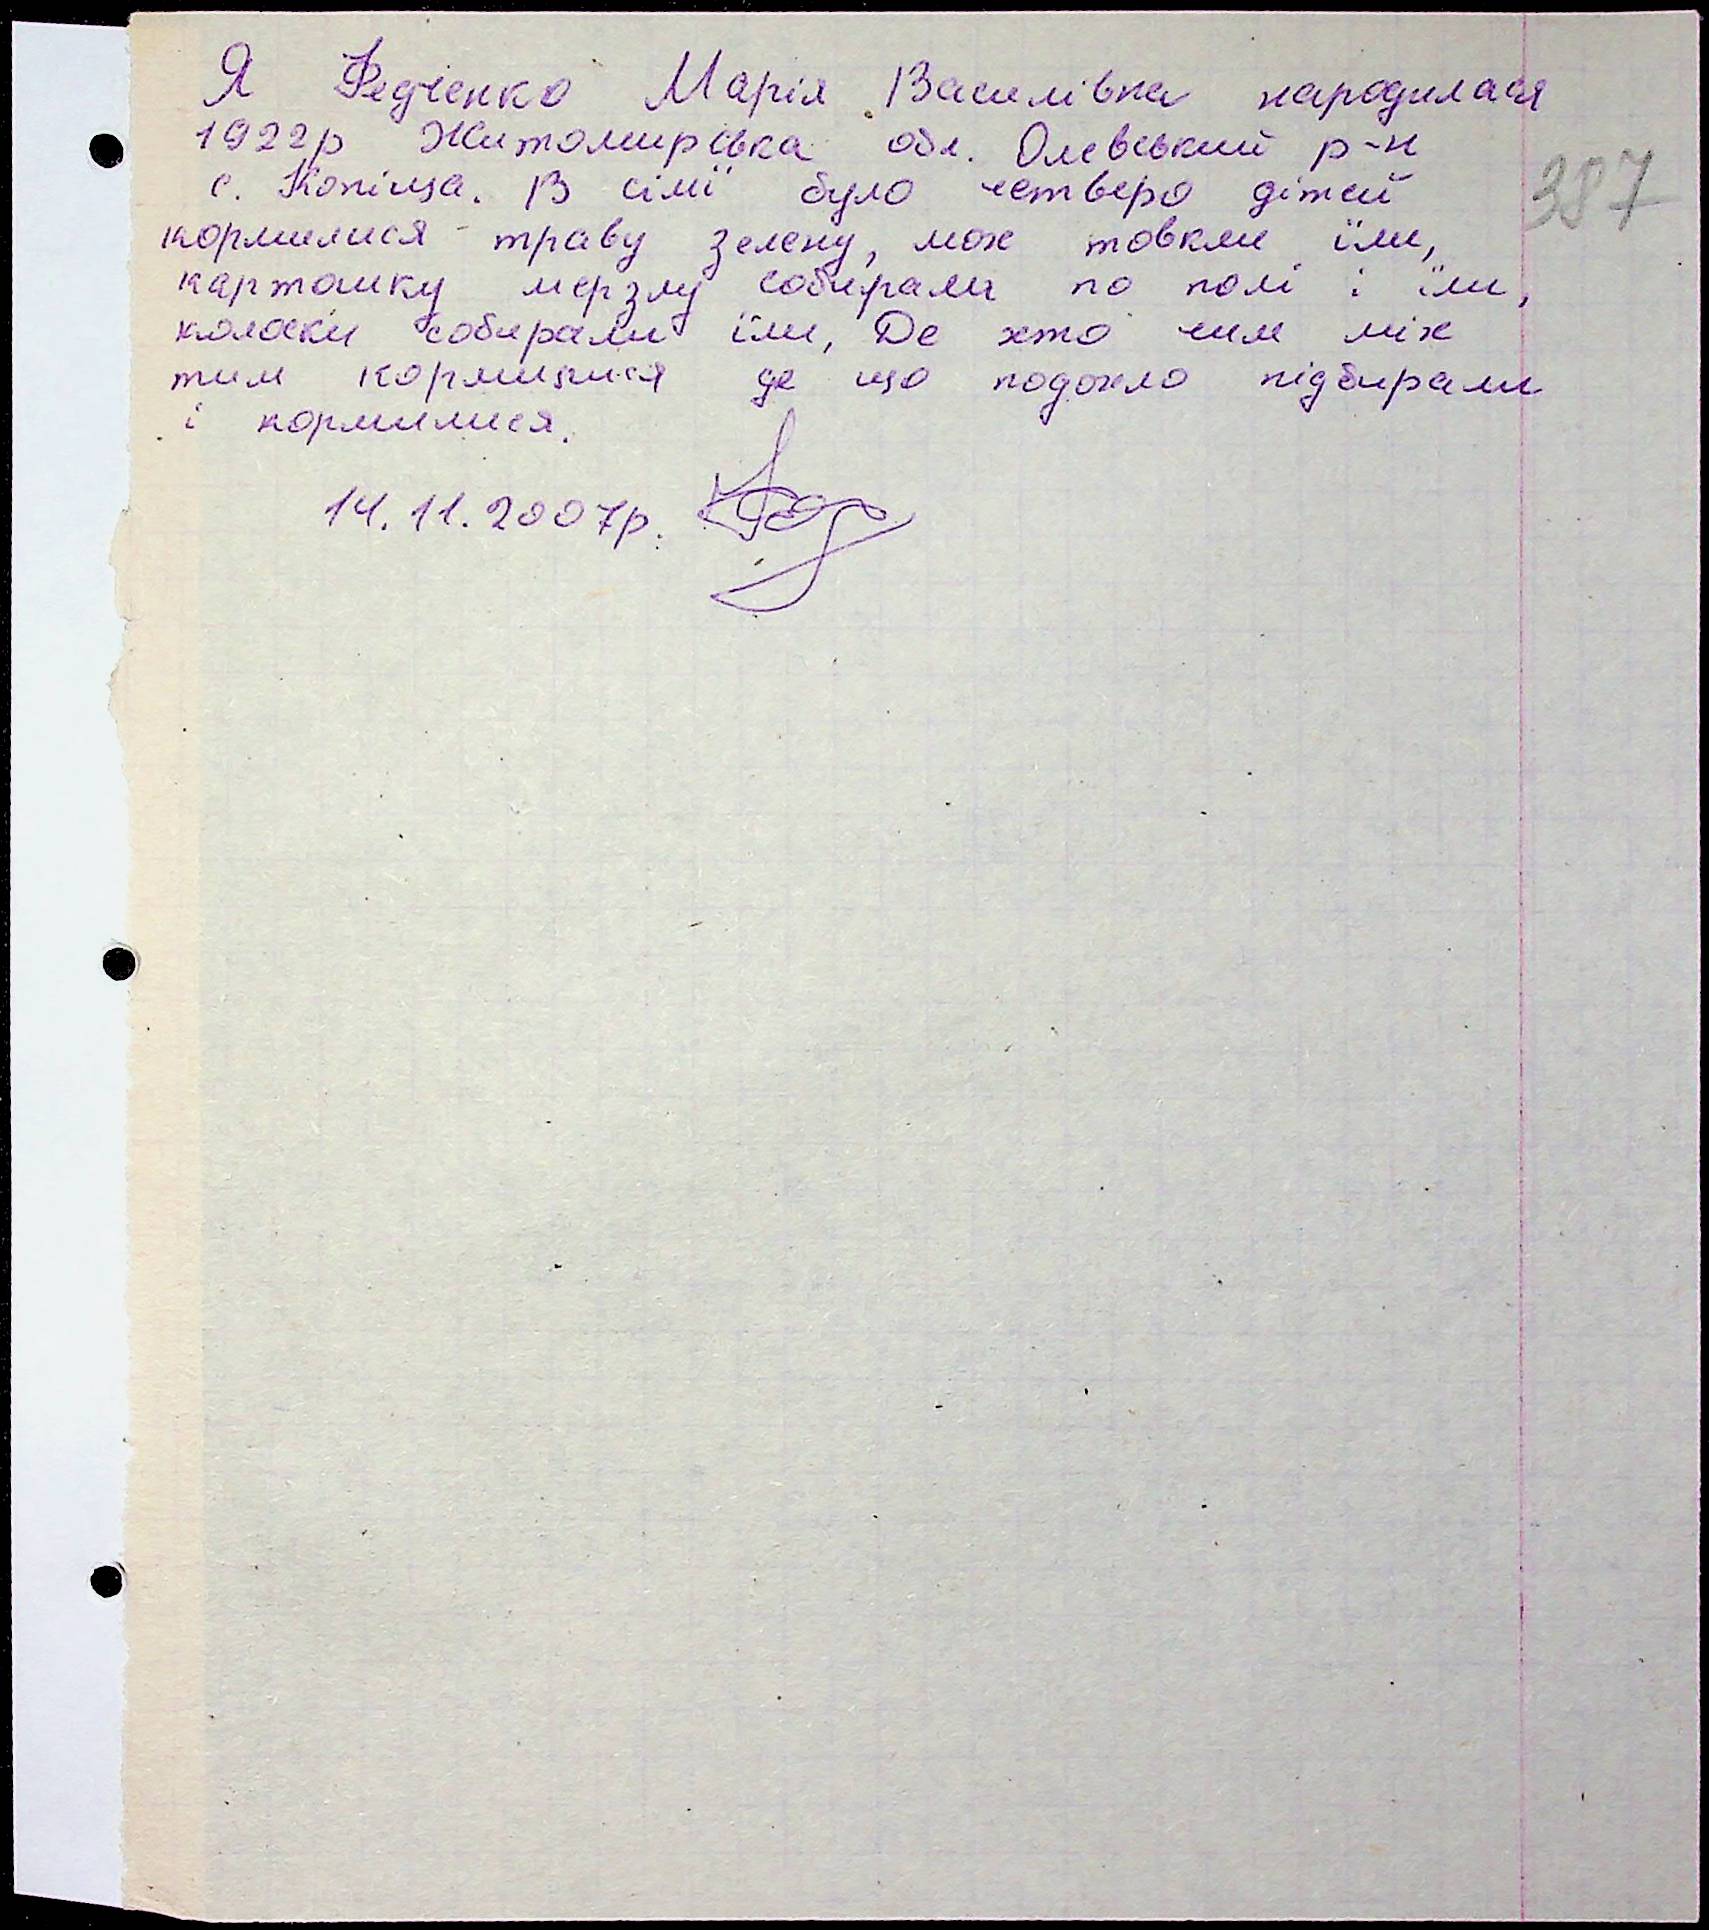 Я Федченко Марія Василівна народилася
1922р Житомирська обл. Олевський р-н
с. Копіща. В сімї було четверо дітей
387
кормилися траву зелену, мох товкли їли,
картошку мерзлу собирали по полі і їли,
колоски собирали їли, Де хто чим міх
тим кормилися де що подохло підбирали
і кормилися.
14.11.2007р.